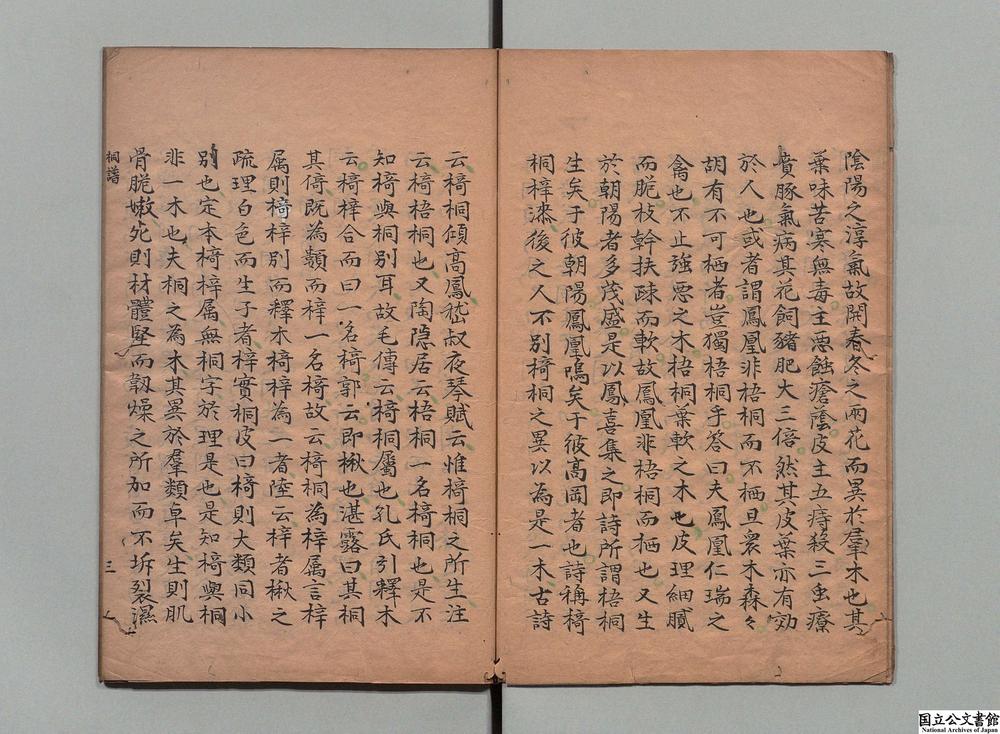 陰陽之淳氣故開春冬之兩花而異於羣木也其
葉味苦寒無毒主惡蝕瘡蔭皮主五痔殺三虫療
賁豚氣病其花飼豬肥大三倍然其皮葉亦有効
於人也或者謂鳳凰非梧桐而不栖且衆木森々
胡有不可栖者豈獨梧桐乎答曰夫鳳凰仁瑞之
禽也不止強惡之木梧桐葉軟之木也皮理細膩
而脆枝幹扶疎而軟故鳳凰非梧桐而栖也又生
於朝陽者多茂盛是以鳳喜集之即詩所謂梧桐
生矣于彼朝陽鳳凰鳴矣于彼高岡者也詩稱椅
桐梓漆後之人不別椅桐之異以為是一木古詩
云椅桐傾高鳳嵇叔夜琴賦云惟椅桐之所生注
云椅梧桐也又陶隠居云梧桐一名椅桐也是不
知椅與桐別耳故毛傳云椅桐屬也孔氏引釋木
云椅梓合而曰一名椅郭云即楸也湛露曰其桐
其椅既為類而梓一名椅故云椅桐為梓属言梓
属則椅梓別而釋木椅梓為一者陸云梓者楸之
疏理白色而生子者梓實桐皮曰椅則大類同小
別也定本椅梓属無桐字於理是也是知椅與桐
非一木也夫桐之為木其異於羣類卓矣生則肌
骨脆嫩死則材體堅而韌燥之所加而不坼裂濕
桐譜
三
国立公文書館
National Archives of Japan